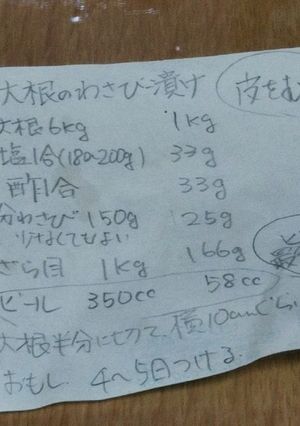 大根のわさび漬け 皮をむ
大根6kg 1kg
塩1合(180~200g) 33g
酢1合 33g
分わさび 150g 25g
少なくてもよい
ざら目 1kg 166g
ビール 350cc 58cc
大根半分に切って、横10cmぐら
おもし 4~5日つける